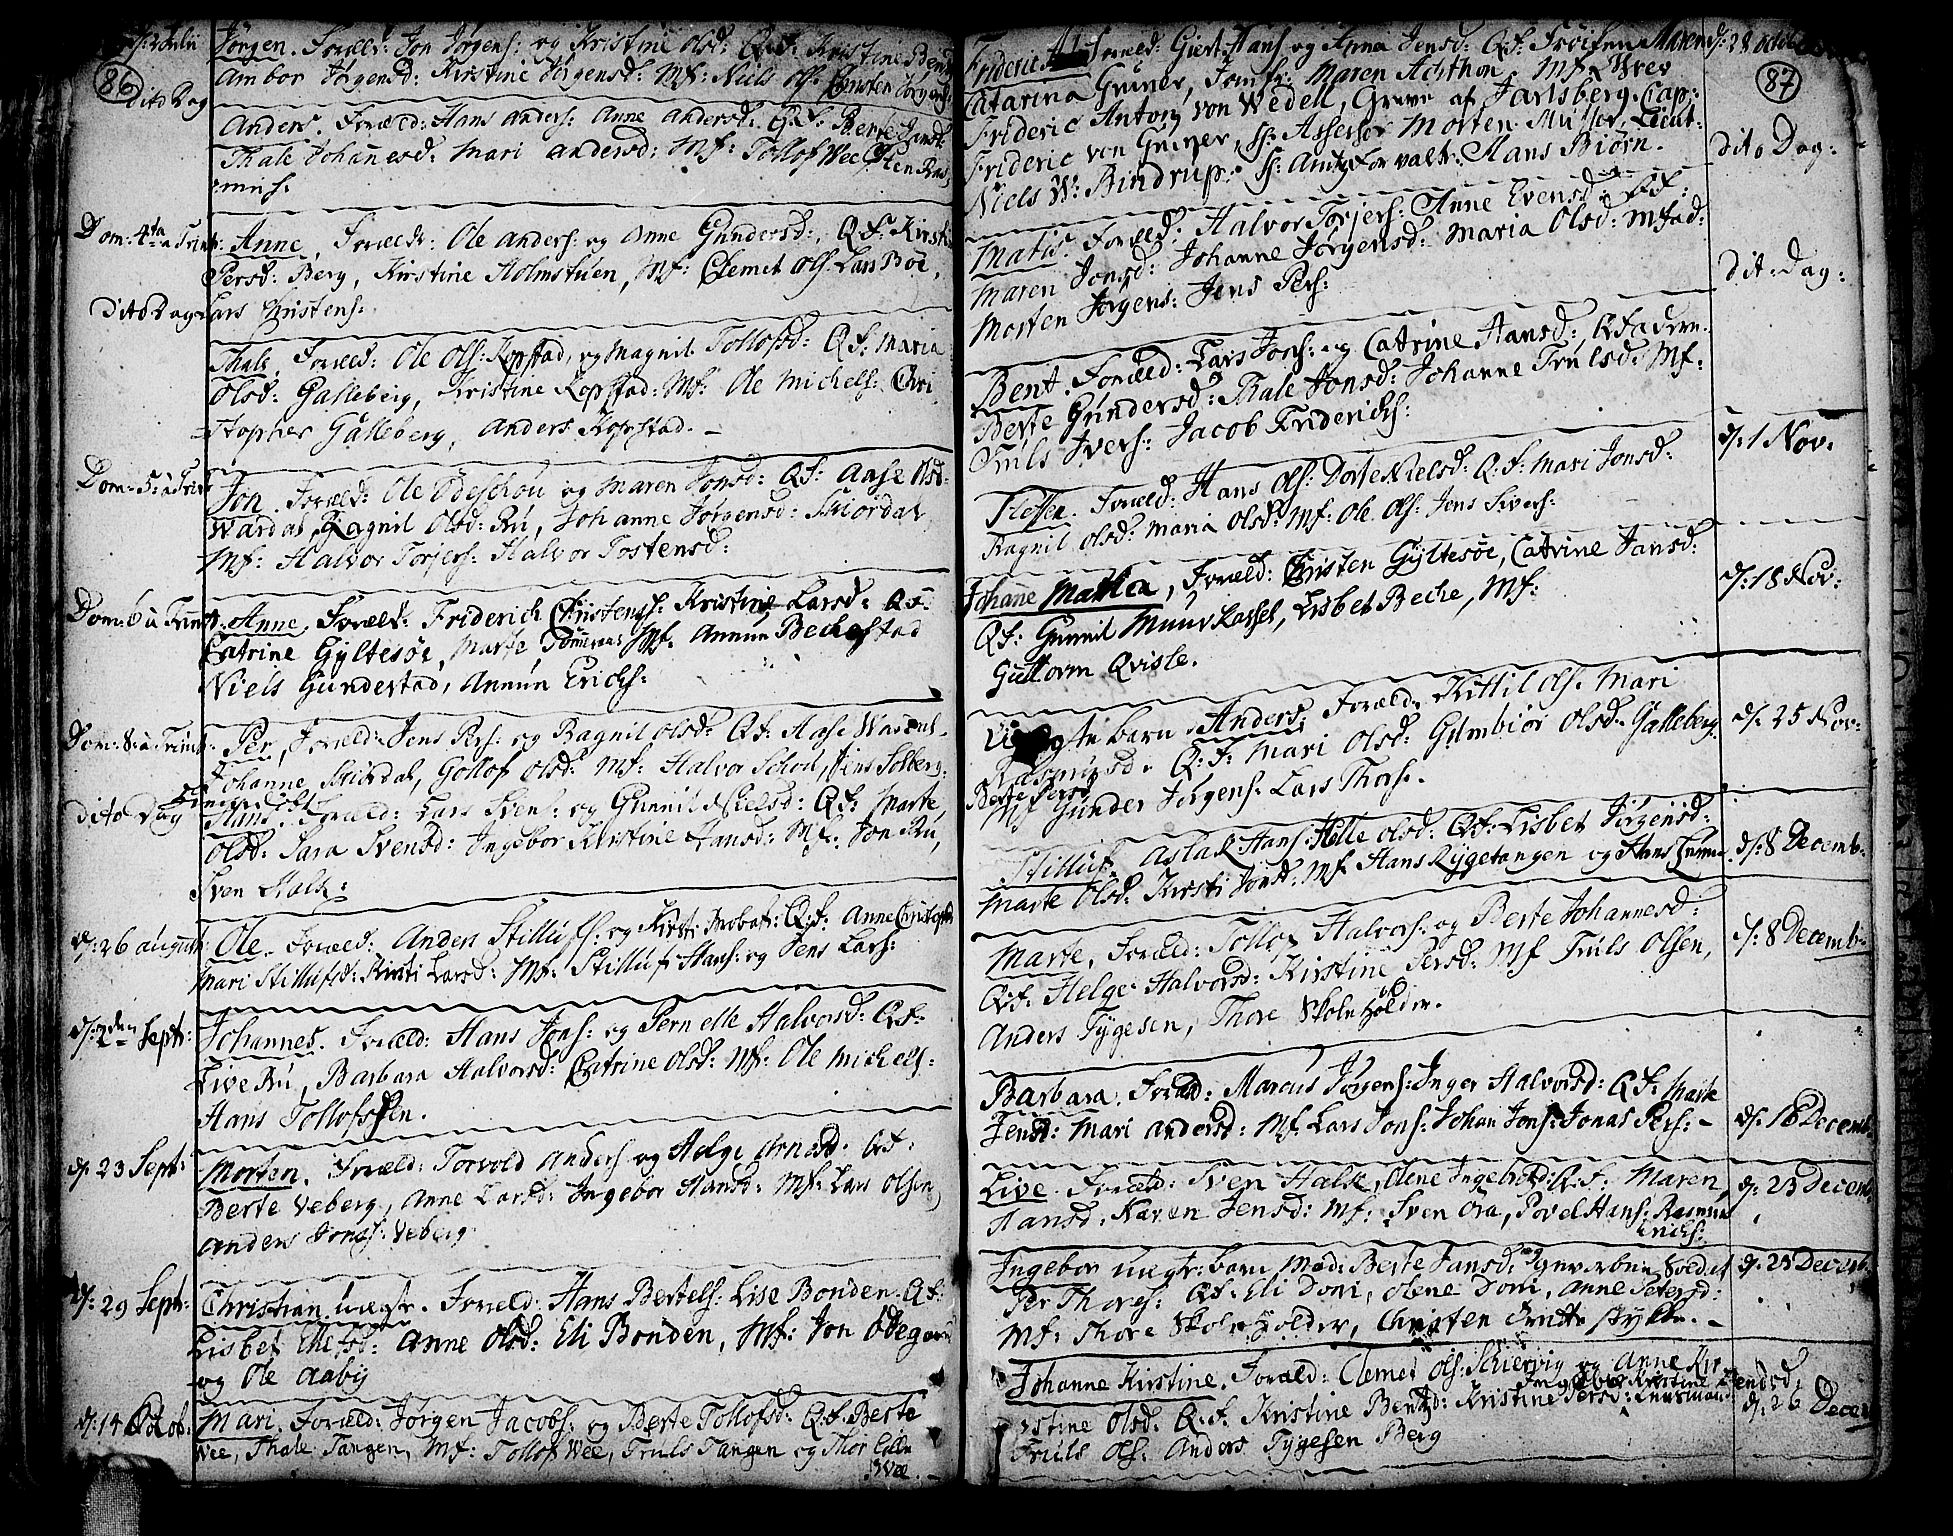 86
d: 2 Julii Jørgen. Foræld: Jon Jørgens: og Kirstine Olsd: Q.F: Kirstine Bent
Ambor Jørgensd: Kirstine Jørgensd: Mf: Niels Ols: Christen Jørgens:
dito Dag
Anders. Foræld: Hans Anders: Anne Andersd: Q.F: Berte Hansd:
Thale Johannesd: Mari Andersd: Mf: Tollof Wee, Sten Ras
mus:
Dom: 4ta a Trinit: Anne, Foræld: Ole Anders: og Anne Gundersd: Q.F: Kirsti
Persd: Berg, Kirstine Holmstuen, Mf: Clemet Ols: Lars Boe,
dito Dag Lars Christens:
Thale, Foræld: Ole Ols: Kopstad, og Magnil Tollofsd: Q.F: Maria
Olsd: Galleberg, Kirstine Kopstad: Mf: Ole Michels: Chri
stopher Galleberg, Anders Kopstad. -
Dom: 5: a Trinit Jon. Foræld: Ole Ødeschou og Maren Jonsd: Q.F: Aase Olsd:
Wardal, Ragnil Olsd: Ru, Johanne Jørgensd: Skiørdal
Mf: Halvor Torjers: Halvor Tostensd:
Dom: 6 a Trinit. Anne, Foræld: Friderich Christens: Kirstine Larsd: Q.F:
Catrine Gyltesøe, Marte Mf: Annun Bechestad
Niels Gundestad, Annun Erichs:
Dom: 8: a Trinit: Per, Foræld: Jens Pers: og Ragnil Olsd: Q.F: Aase
Johanne Skiørdal, Gollof Olsd: Mf: Halvor Schou, Jens Solberg:
dito Dag Hans. Foræld: Lars Svens: og Gunnil Nielsd: Q.F: Marte
Olsd: Sara Svensd: Ingebor Kirstine Hansd: Mf: Jon Ru,
Sven Halk:
d: 26 August: Ole. Foræld: Anders Stillufs: og Kirsti Q.F. Anne Christophs
Mari Stillufsd: Kirsti Larsd: Mf: Stilluf Hans: og Jens Lars:
d: 2den Septr: Johannes. Foræld: Hans Jons: og Pernelle Halvorsd: Q.F:
Live Ru, Barbara Halvorsd: Catrine Olsd: Mf: Ole Michels:
Hans Tollofssen.
d: 23 Sept: Morten. Foræld: Torvold Anders og Helge Arnesd: Q.F:
Berte Veberg, Anne Larsd: Ingebor Hansd: Mf: Lars Olsen,
Anders Jonas: Veberg
d: 29 Septr: Christian uægte. Foræld: Hans Bertels: Lise Bonden. Q.F:
Lisbet Anne Olsd: Eli Bonden, Mf: Jon Ødegaard
og Ole Aaby
d: 14 Octob: Mari. Foræld: Jørgen Jacobs: og Berte Tollofsd: Q.F. Berte
Wee, Thale Tangen, Mf: Tollof Wee, Truls Tangen og Thor
Wee.
87
Frideric Foræld: Giert Hans og Anna Jensd: Q.F. Frøiken Maren d: 28 Octob
Catarina Gruner, Jomfr: Maren Achthon, Mf. Hrer
Frideric Anton von Wedell, Greve af Jarlsberg. Cap:
Frideric von Gruner, Sr: Assessor Morten Muller, Lieut:
Niels W: Bindrup: Sr: Amtsforvalt: Hans Biørn.
dito Dag:
Matis. Foræld: Halvor Torjers: Anne Evensd: Q.F:
Maren Jonsd: Johanne Jørgensd: Maria Olsd: Mfad:
Morten Jørgens: Jens Pers:
dit: Dag:
Bent. Foræld: Lars Jons: og Catrine Hansd: Qfadern.
Berte Gundersd: Thale Jonsd: Johanne Trulsd: Mf:
Truls Ivers: Jacob Friderichs:
d: 1 Nov.
Steffen. Foræld: Hans Ols: Dorte Nielsd: Q.F: Mari Jonsd:
Ragnil Olsd: Maria Olsd: Mf: Ole Ols: Jens Sivers:
Johane Mathea, Foræld: Christen Gyltesøe, Catrine Jansd: d: 18 Nov:
Q.F: Gunnil Muurkassel, Lisbet Beche, Mf:
Guttorm Qvisle.
Uægte barn Anders, Foræld. Kittil Ols. Mari d: 25 Nov:
Rasmusd. Q.F: Mari Olsd: Gimbiør Olsd: Galleberg
Berte Persd
Mf: Gunder Jørgens: Lars Thors.
Stilluf. Aslak Hans: Helle Olsd: Q.F. Lisbet Jørgensd: d: 8 Decemb:
Marte Olsd: Kirsti Jonsd: Mf Hans Rygetangen og Hans
Marte, Foræld: Tollof Halvors: og Berte Johannesd: d: 8 Decemb:
Q.F: Helge Halvorsd: Kirstine Persd: Mf Truls Olsen,
Anders Tygesen, Thore Skoleholder.
Barbara. Foræld: Marcus Jørgens: Inger Halvorsd: Q.F: Marte
Jensd: Mari Andersd: Mf: Lars Jons: Johan Jons: Jonas Pers: - d: 16 Decemb:
Live. Foræld: Sven Halk, Olene Ingebretsd: Q.F: Maren d: 23 Decemb
Hansd: Karen Jensd: Mf: Sven Ora, Povel Hans: Rasmus
Erichs:
Ingebor uægte barn Mod: Berte Jansd: og Soldat d: 23 Decemb.
Per Thores: Q.F: Eli Doni, Olene Doni, Anne Petersd:
Mf: Thore Skoleholder, Christen -
Johanne Kirstine. Foræld: Clemed Ols: Schiervig og Anne Kir
Ingebor Kirstine Jensd:
stine Olsd: Q.F. Kirstine Bentsd: Kirstine Persd: d: 26 Decem
Truls Ols: Anders Tygesen Berg